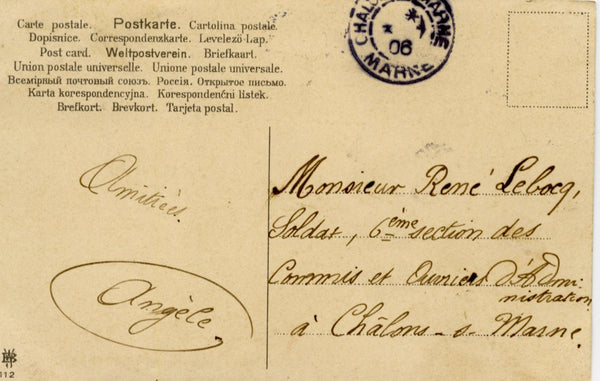 Carte postale. Postkarte. Cartolina postale.
Dopisnice. Correspondenzkarte. Levelező-Lap.
Post card. Weltpostverein. Briefkaart.
Union postale universelle. Unione postale universale.
Всемірный почтовый союзъ. Россія. Открытое письмо.
Karta korespondencyjna. Korespondenční listek.
Brefkort. Brevkort. Tarjeta postal.
CHALONS MARNE
06
MARNE
Amitiés.
Angèle.
Monsieur René Lebocq,
Soldat, 6ème section des
Commis et Ouvriers d'Admi-
nistration
à Châlons-s-Marne.
112